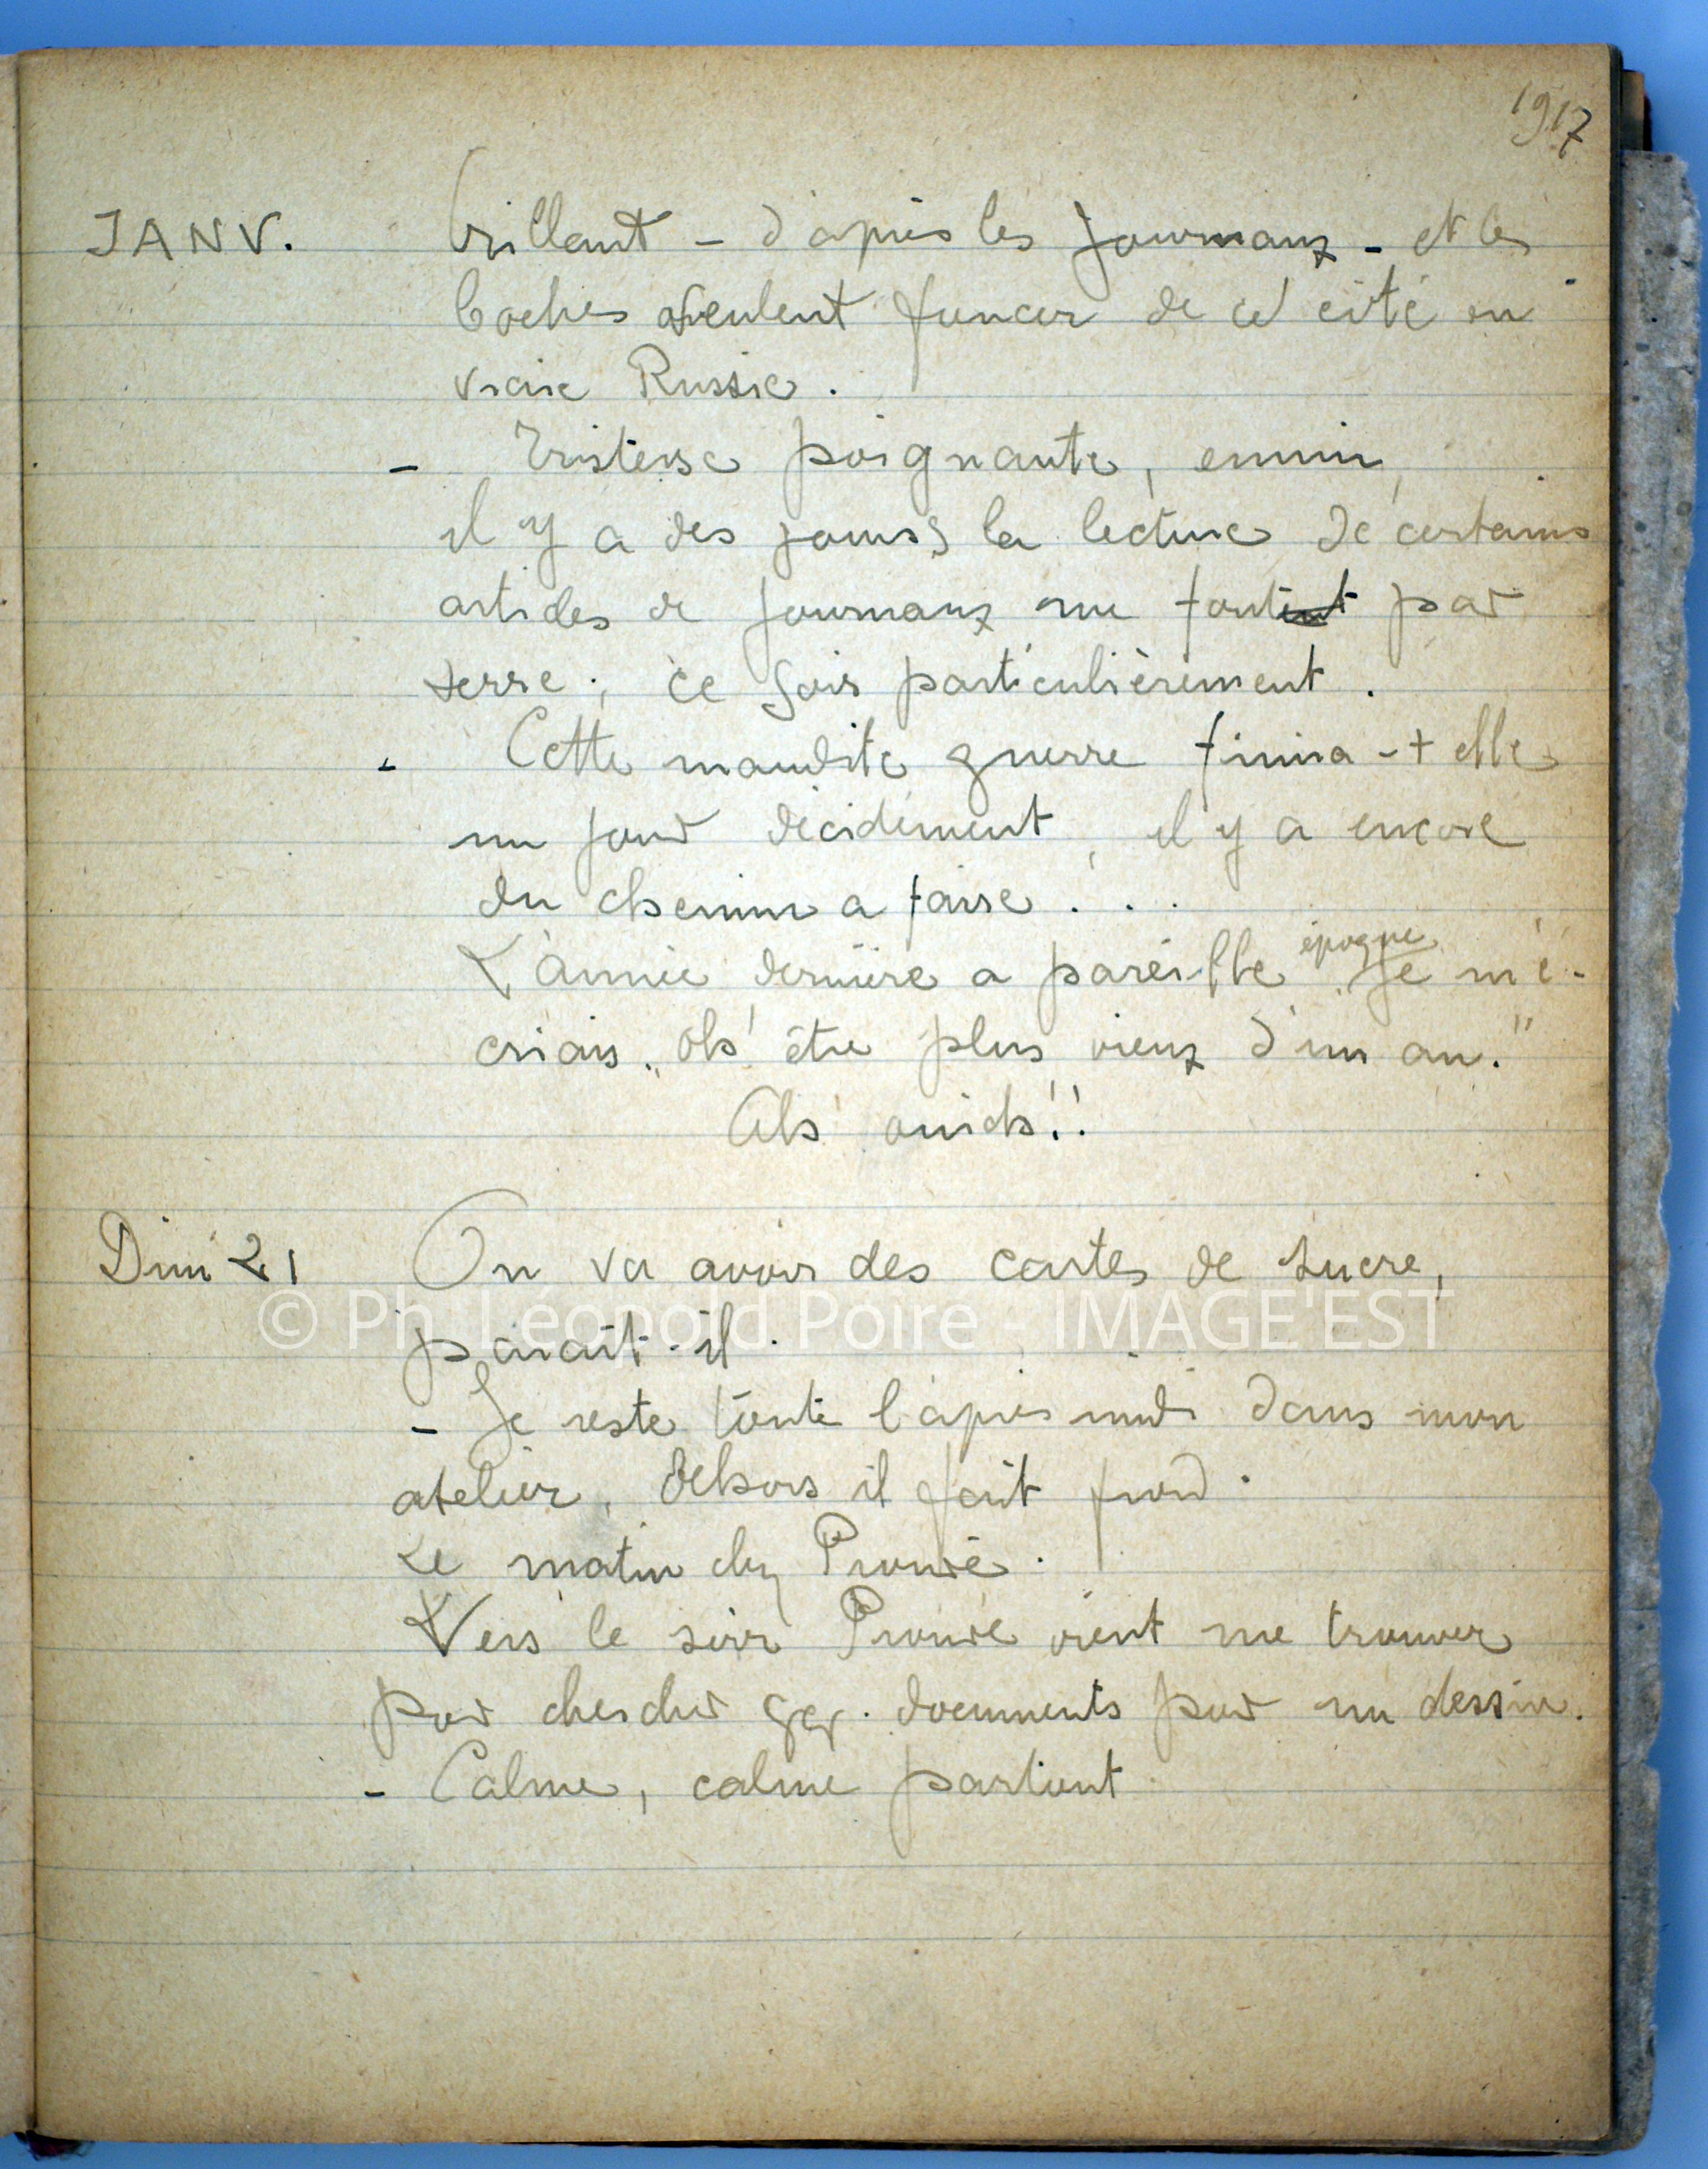 1917
JANV.
brillant - d'après les journaux - et les
boches veulent foncer de ce côté en
vraie Russie.
- Tristesse poignante, ennui,
il y a des jours, la lecture de certains
articles de journaux me fout par
terre ; ce soir particulièrement.
- Cette maudite guerre finira-t elle
un jour décidément, il y a encore
du chemin a faire . . .
L'année dernière a pareille époque je m'é-
criais „ oh! être plus vieux d'un an."
Ah! ouich!!
Dim 21
On va avoir des cartes de sucre,
parait-il.
© Ph. Léopold Poiré - IMAGE'EST
- Je reste toute l'après midi dans mon
atelier, dehors il fait froid.
Le matin chez Prouvé.
Vers le soir Prouvé vient me trouver
pour chercher qqs. documents pour un dessin.
- Calme, calme partout